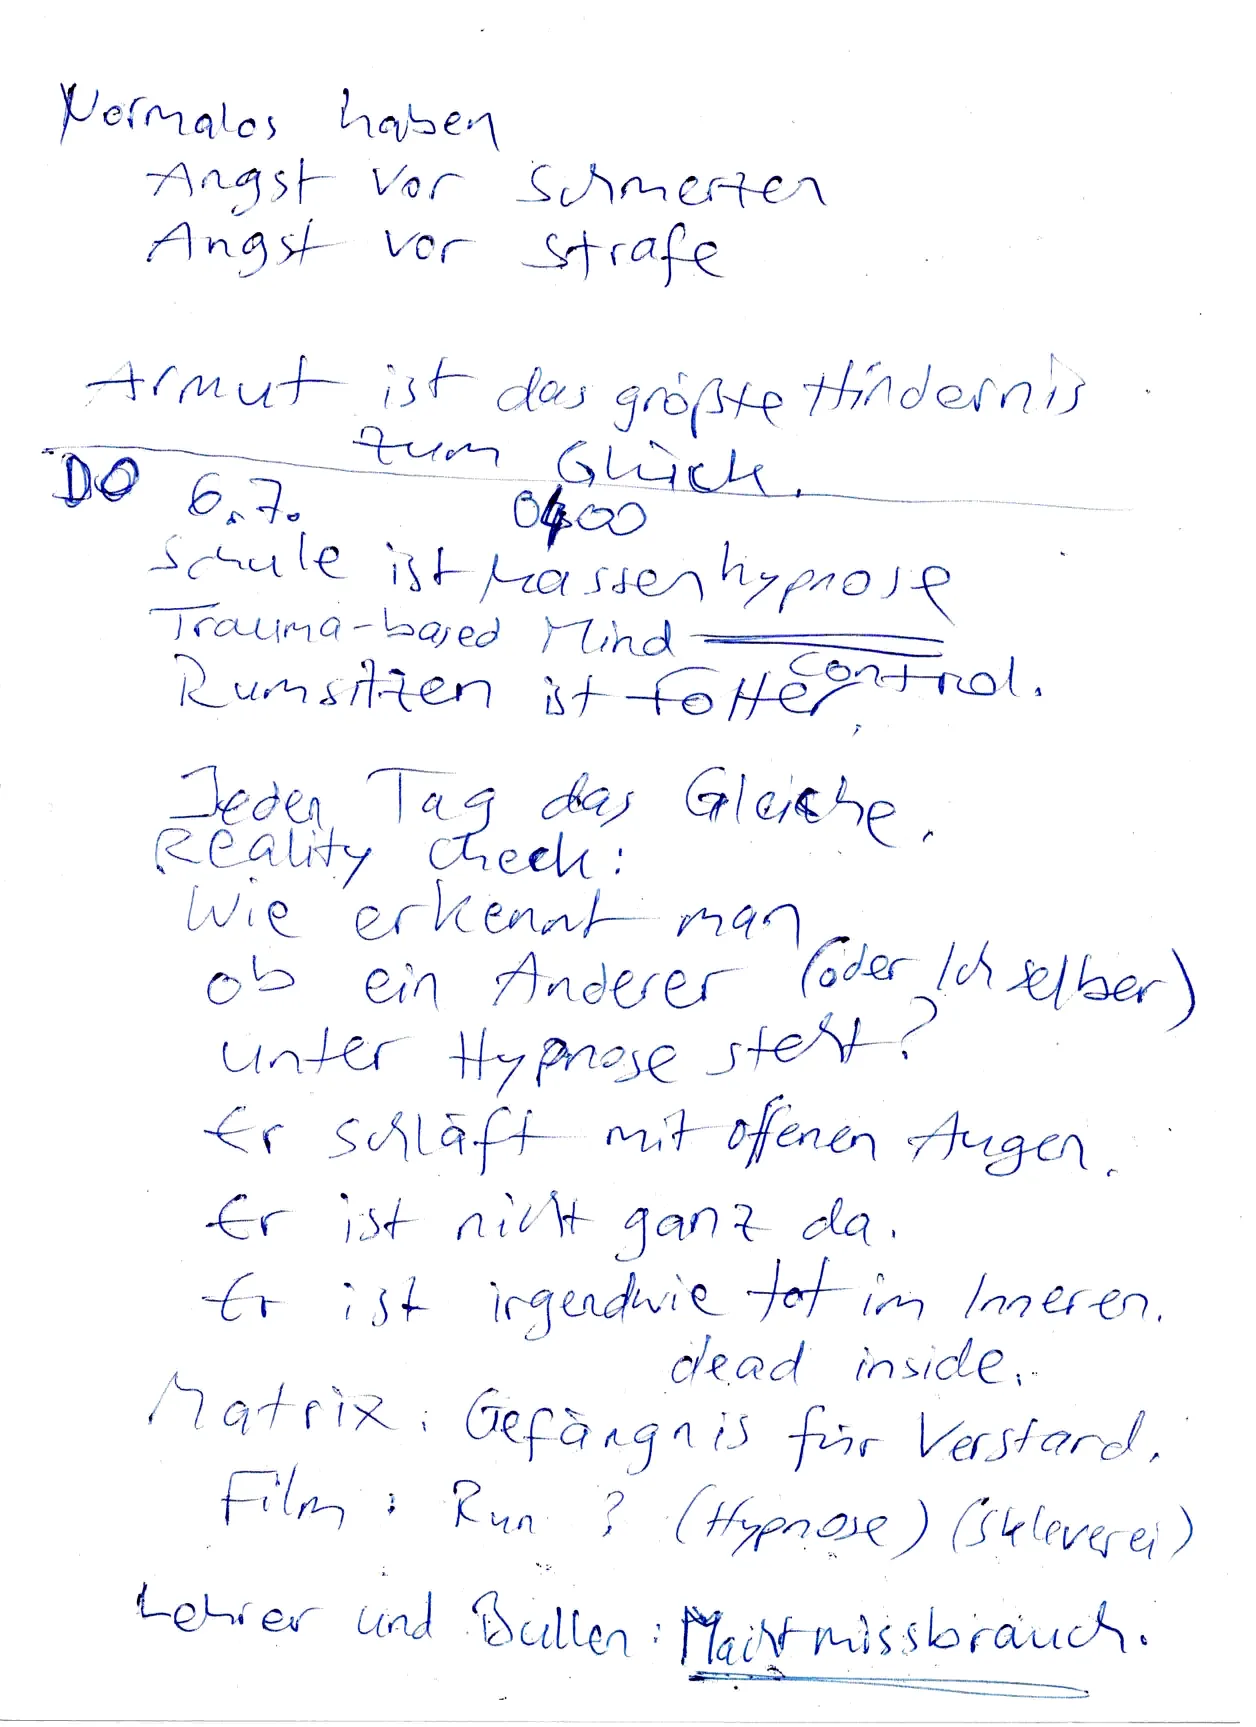 Normalos haben
Angst vor Schmerzen
Angst vor Strafe
Armut ist das größte Hindernis
zum Glück.
DO 6.7. 0400
Schule ist Massenhypnose
Trauma-based Mind
Control.
Rumsitzen ist Folter.
Jeden Tag das Gleiche.
Reality check:
Wie erkennt man
ob ein Anderer (oder Ich selber)
unter Hypnose steht?
Er schläft mit offenen Augen.
Er ist nicht ganz da.
Er ist irgendwie tot im Inneren.
dead inside.
Matrix: Gefängnis für Verstand.
Film: Run? (Hypnose) (Skleverei)
Lehrer und Bullen: Machtmissbrauch.